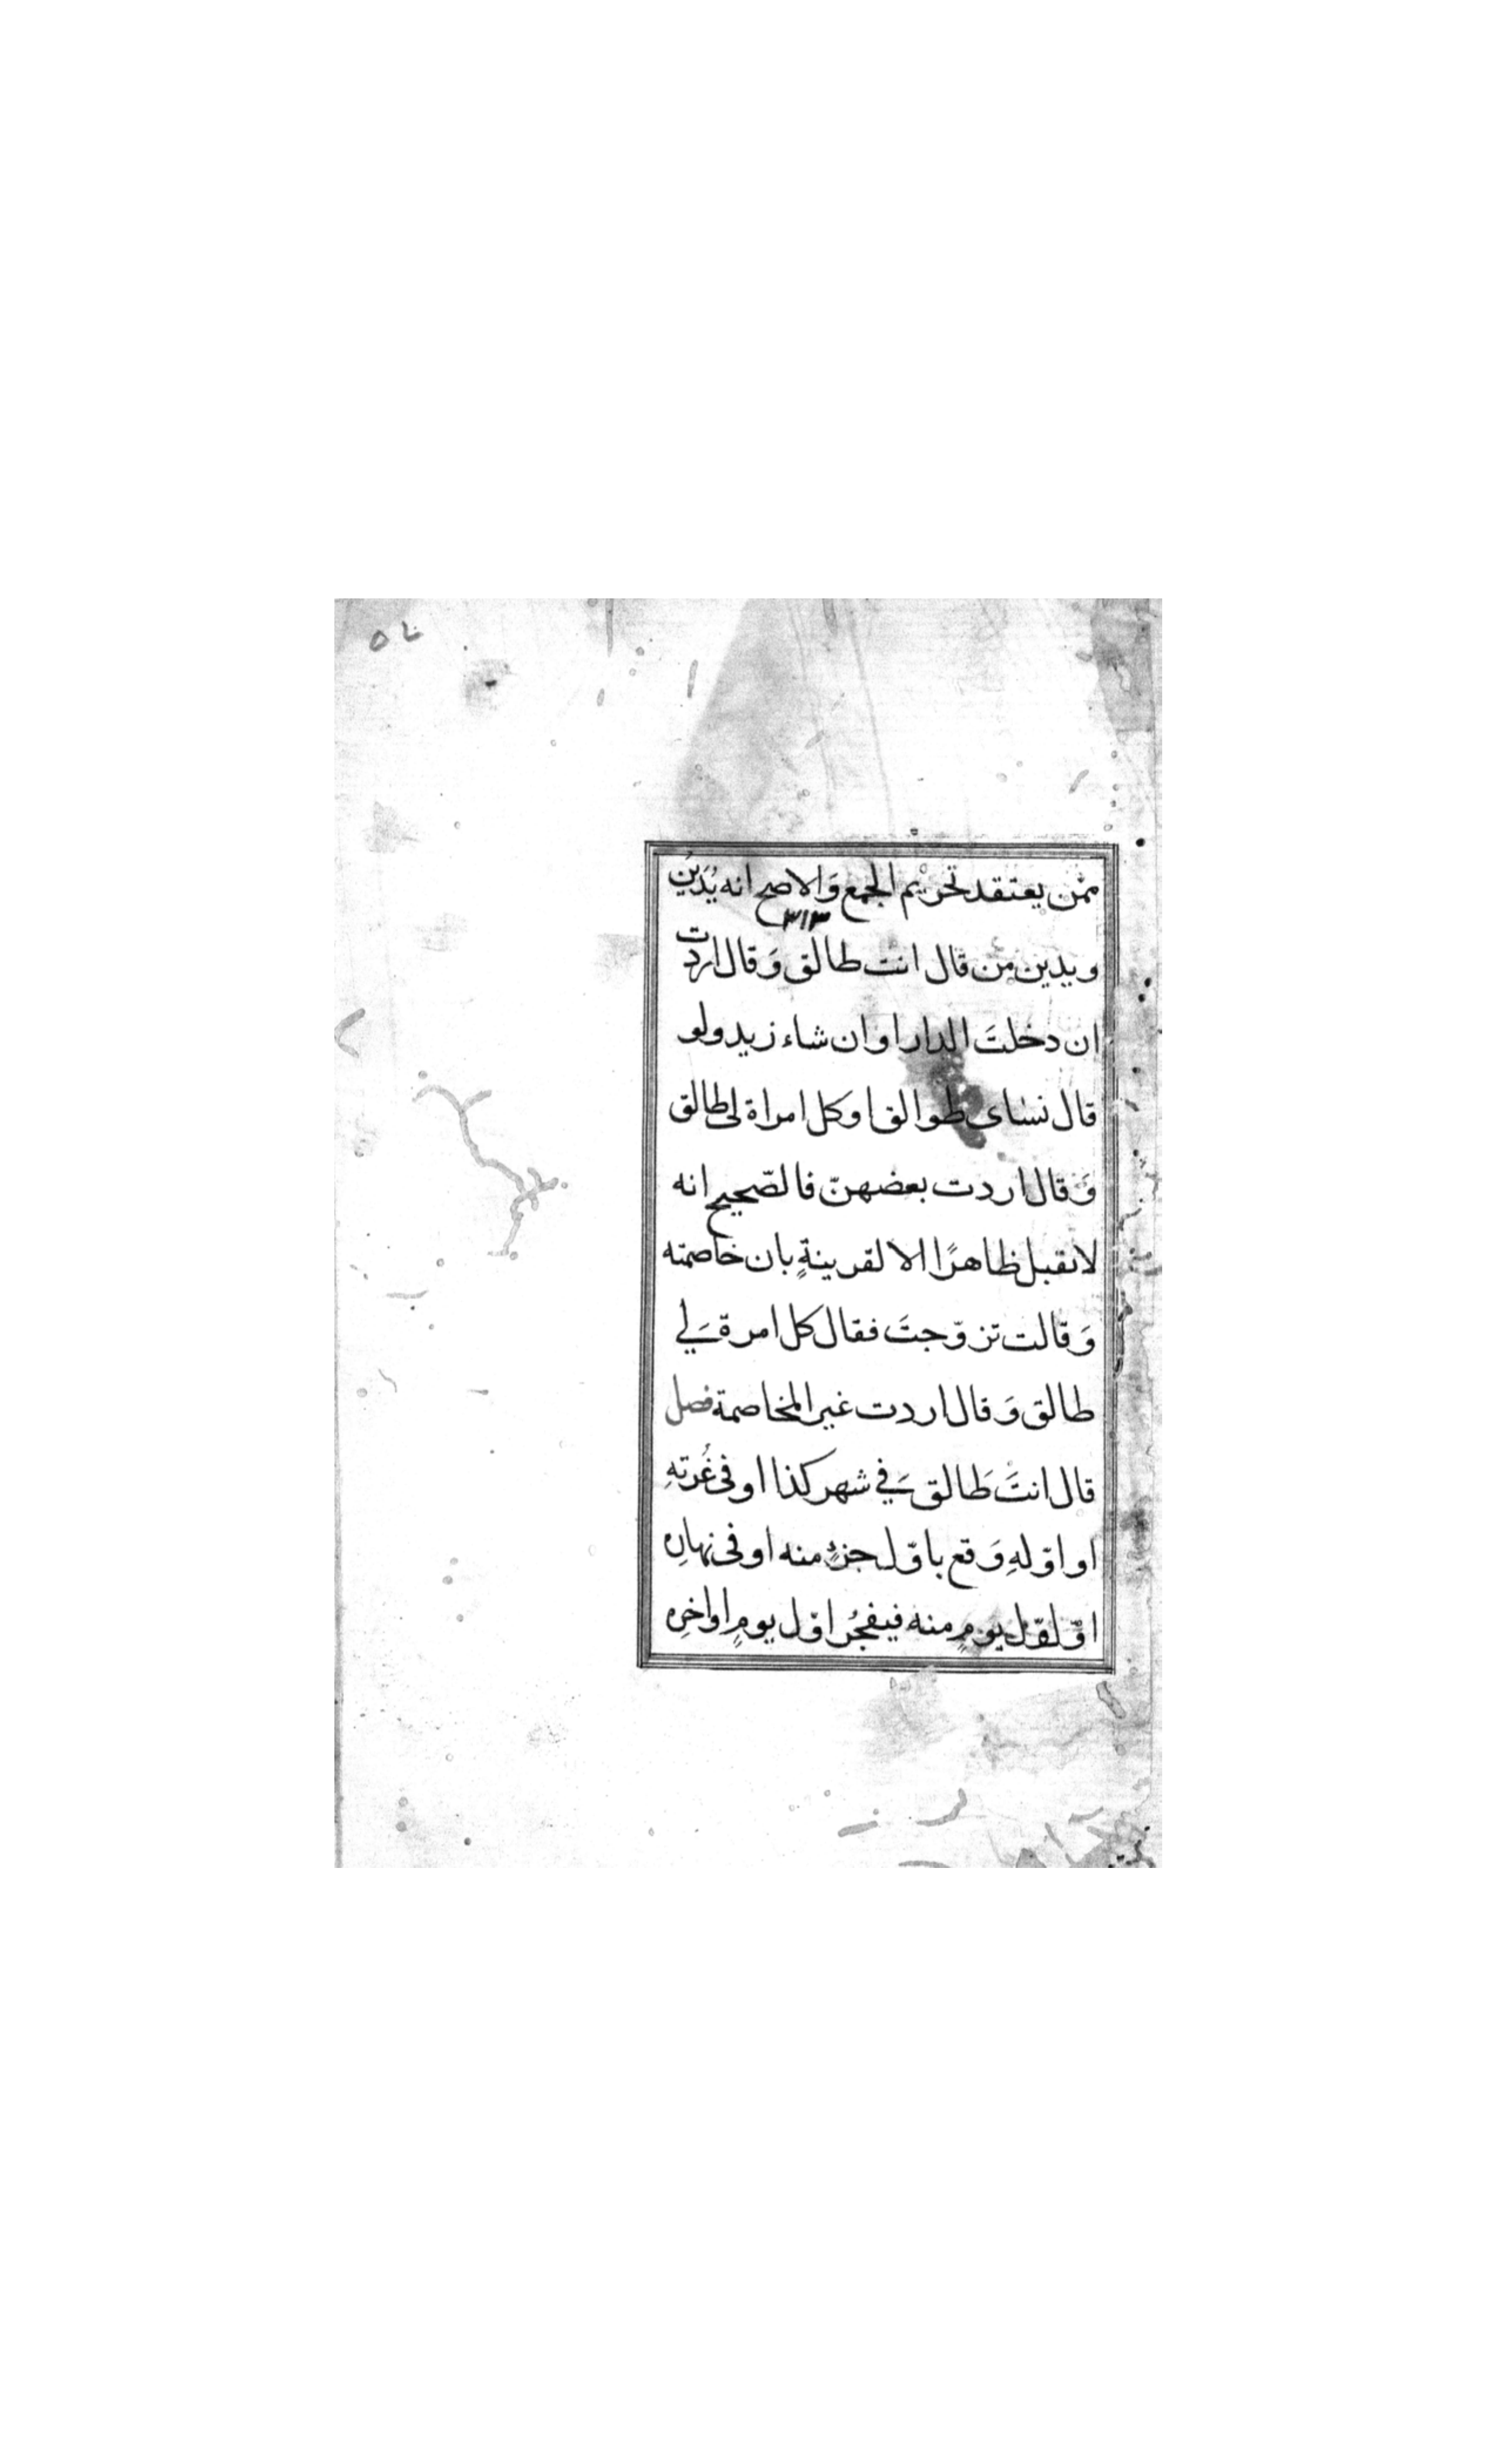 ممّن يعتقد تحريم الجمع وَالاصح انه يُدَيَّن
٣١٣
ويدين من قال انت طالق وَقال اردت
ان دخلتَ الدار او ان شاء زيد ولو
قال نساى طوالق او كل امراة لى طالق
وَقال اردت بعضهنّ فالصّحيح انه
لانقبل ظاهرًا الا لقرينةٍ بان خاصمته
وَقالت تزوّجتَ فقال كل امرة لي
طالق وَقال اردت غير المخاصمة فصل
قال انتَ طَالق في شهر كذا او فى غُرتهِ
او اوّلهِ وَقع باوّل جزءٍ منه او فى نهارِه
اوّل يومٍ منه فيفجُر اوّل يومٍ او اخرِه